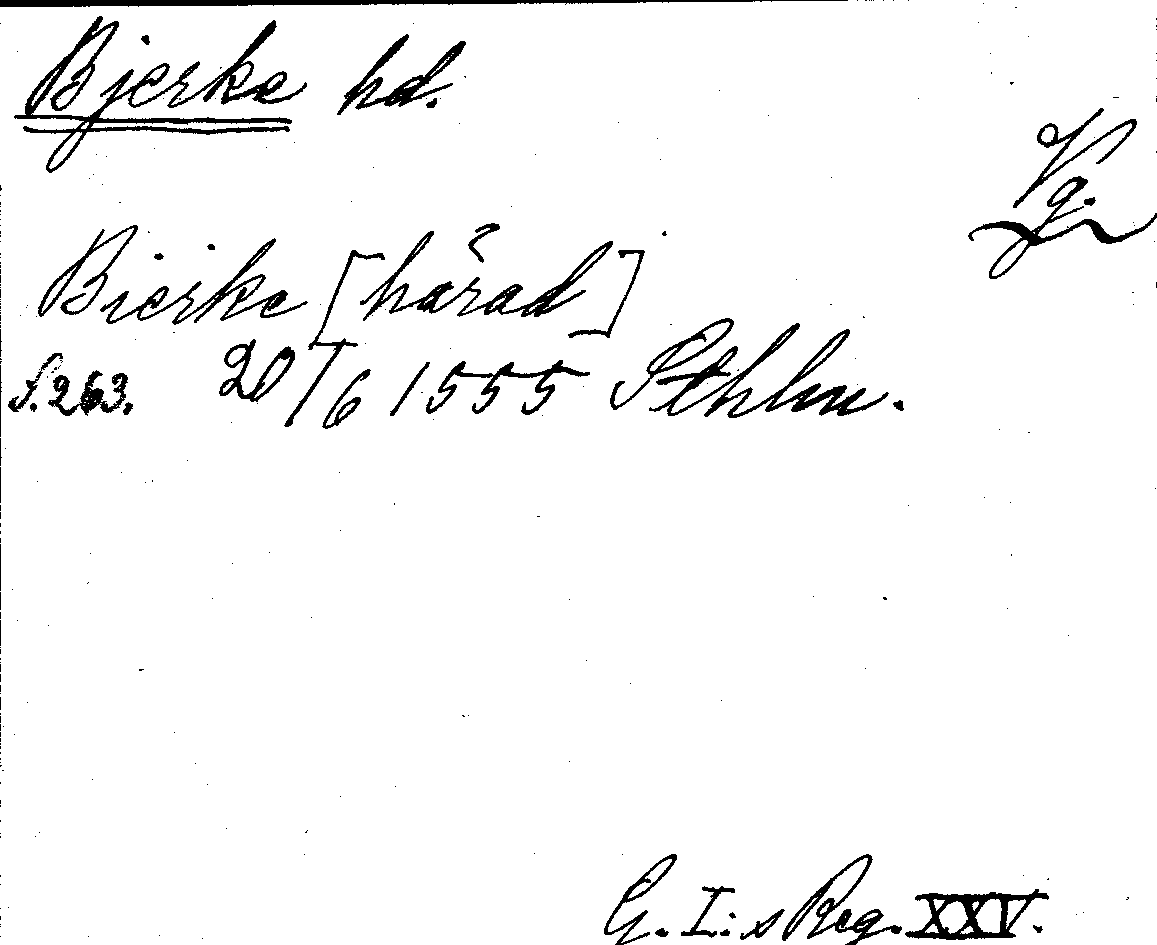 Bjerke hd.
Vg.
Bierke [härad]
s. 263. 20/6 1555 Sthlm.
G. I:s Reg. XXV.